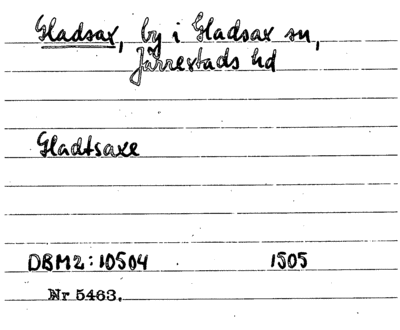 Gladsax, by i Gladsax sn,
Järrestads hd
Gladtsaxe
DBM2:10504 1505
Nr 5463.